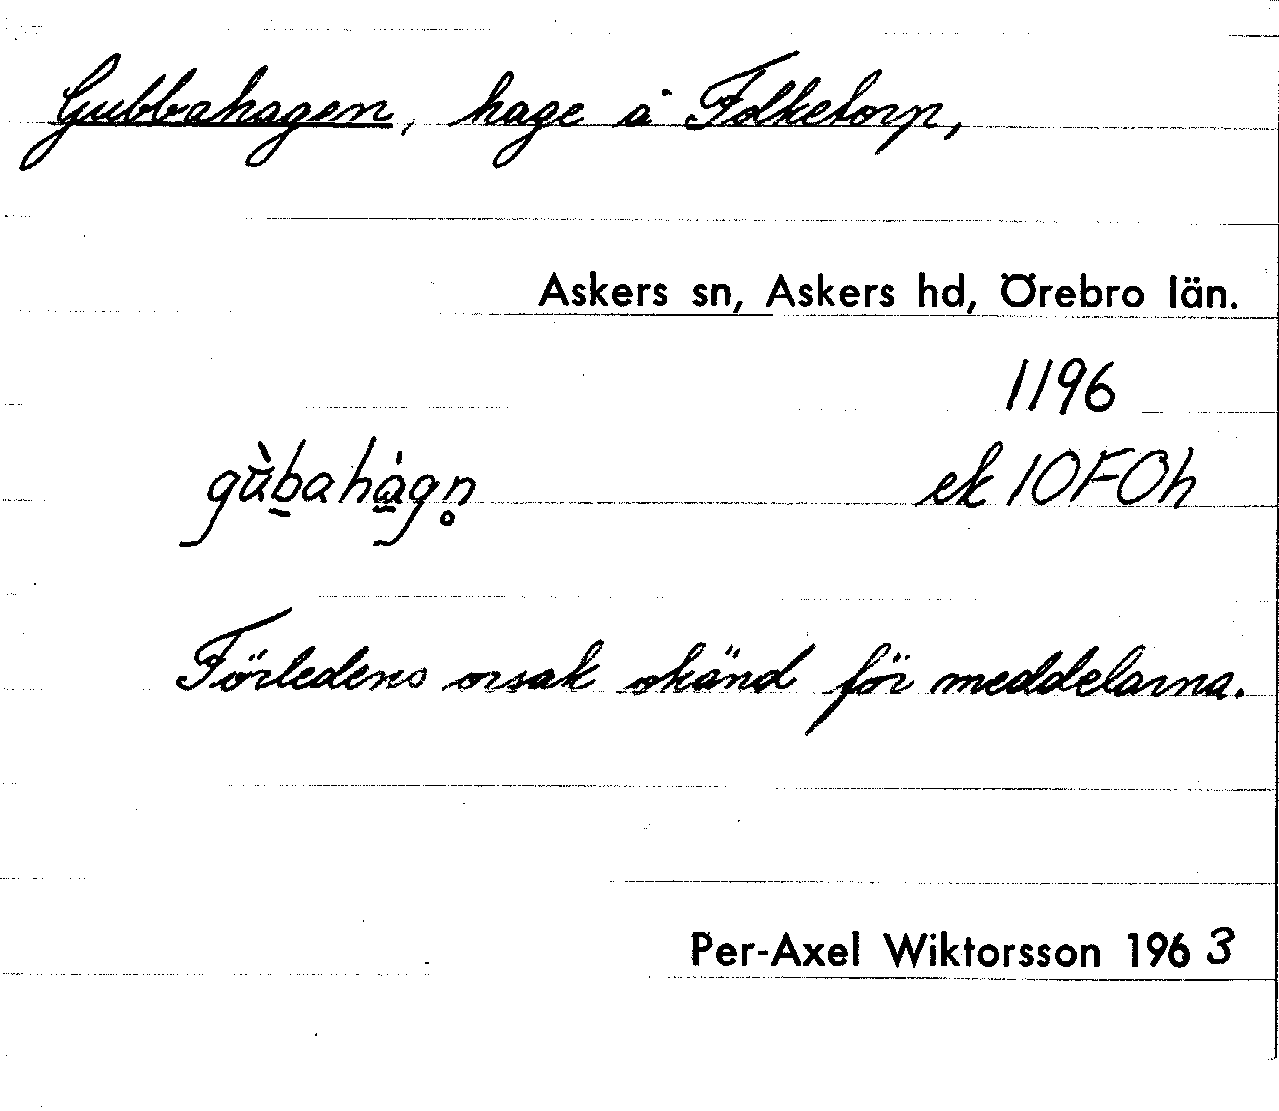 Gubbahagen, hage å Folketorp,
Askers sn, Askers hd, Örebro län.
1196
gùbahàgn̥ ek 10F0h
Förledens orsak okänd för meddelarna.
Per-Axel Wiktorsson 1963